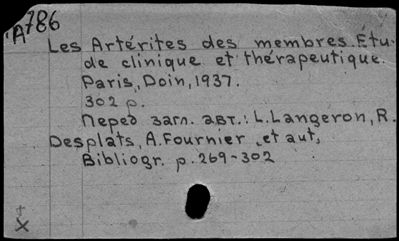 A786
Les Artérites des membres. Étu-
de clinique et thérapeutique.
Paris, Doin, 1937.
302 p.
Перед загл. авт.: L. Langeron, R.
Desplats, A. Fournier et aut.
Bibliogr. p. 269-302
+
X